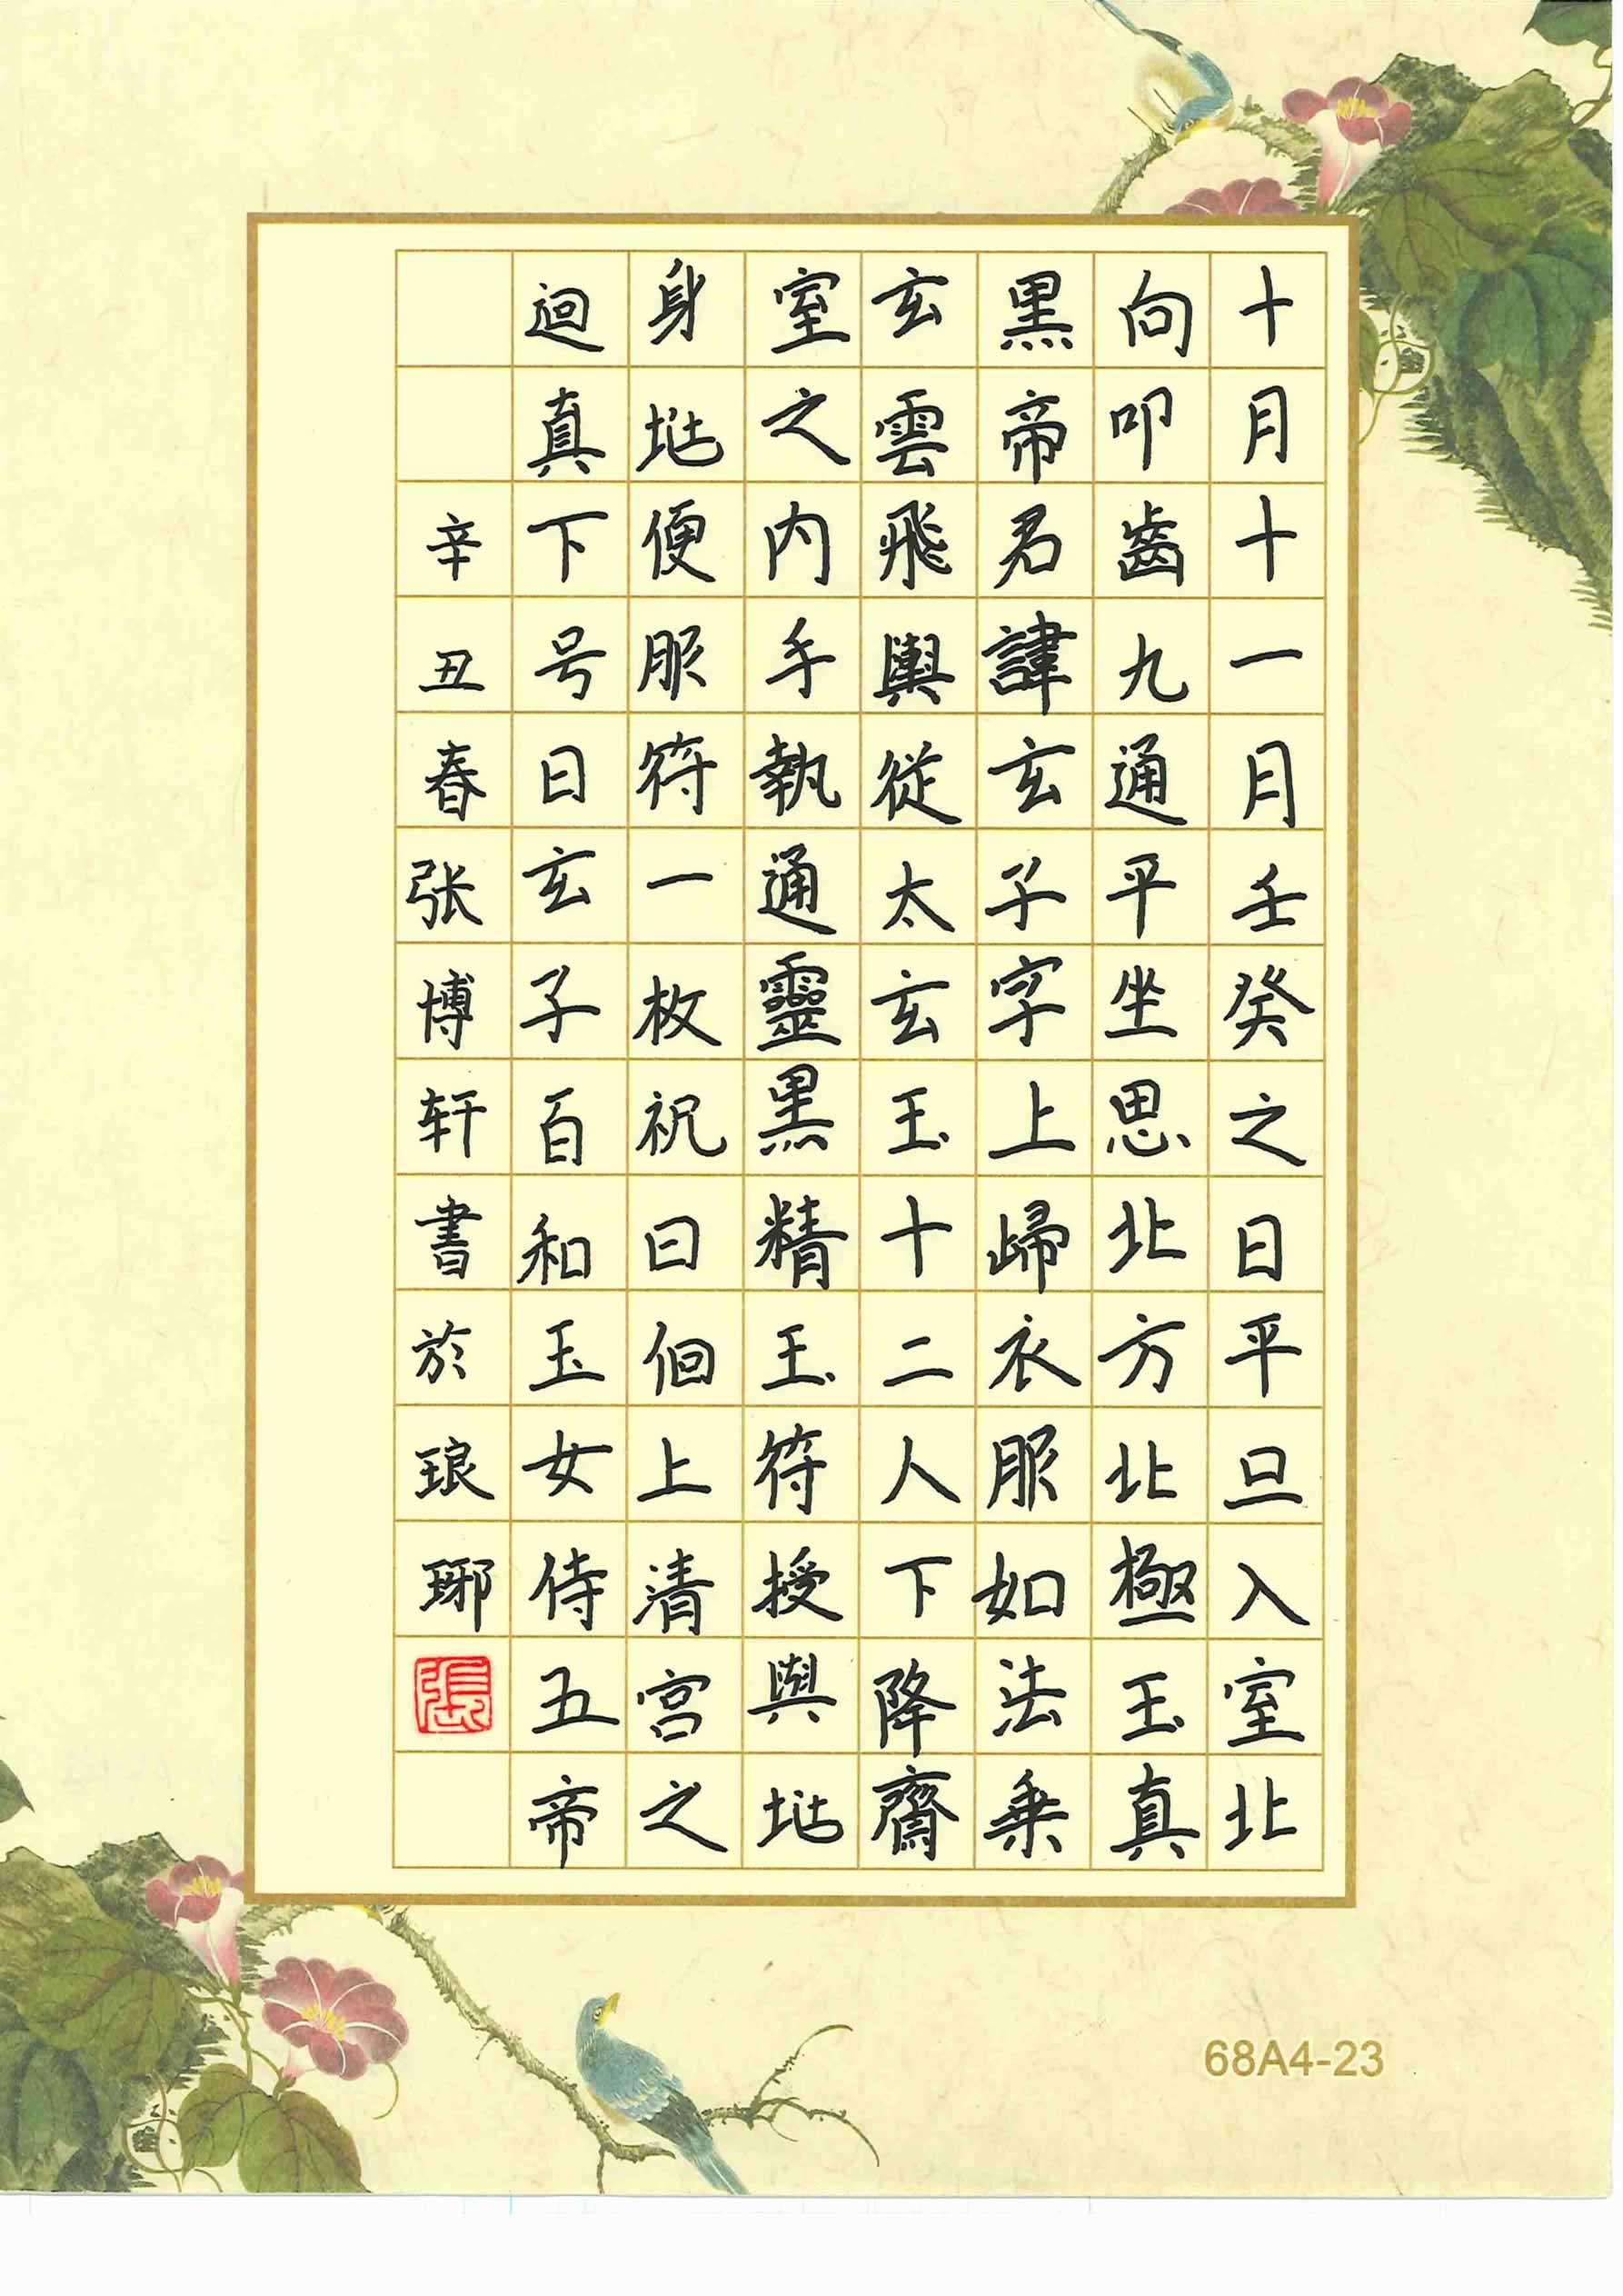 十月十一月壬癸之日平旦入室北
向叩齒九通平坐思北方北極玉真
黑帝君諱玄子字上歸衣服如法乗
玄雲飛輿從太玄玉十二人下降齋
室之內手執通靈黒精玉符授與地
身地便服符一枚祝曰佪上清宫之
迴真下号曰玄子百和玉女侍五帝
辛丑春张博轩書於琅琊
張
68A4-23